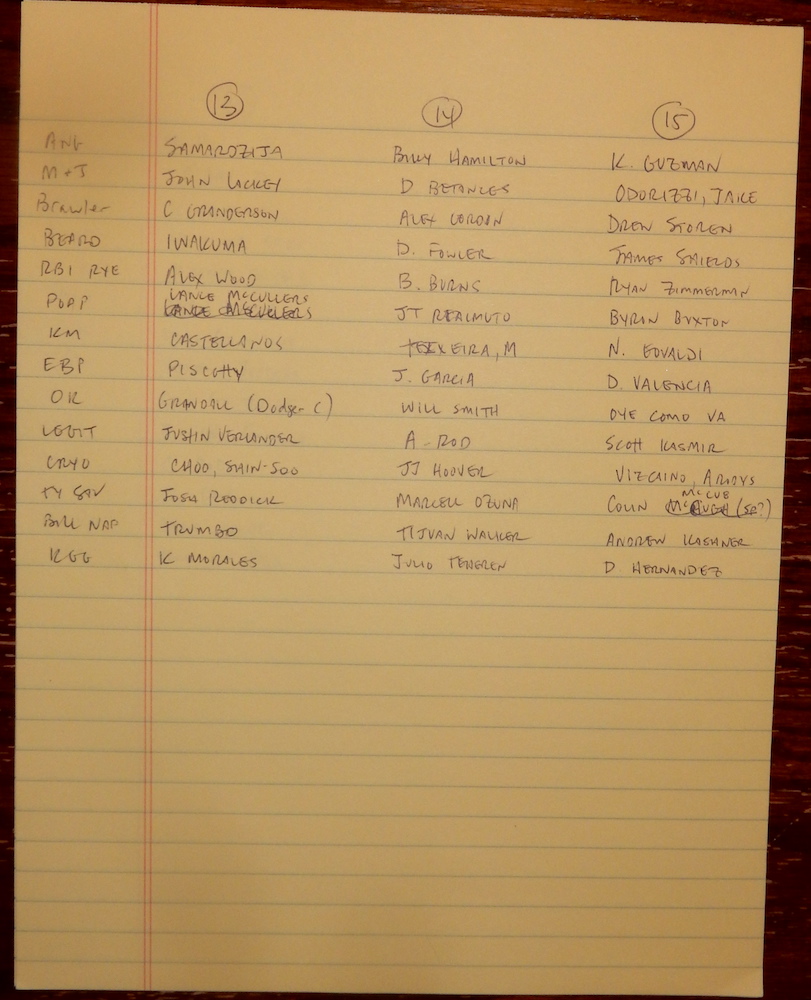 13 14 15
ANG SAMARDZIJA BILLY HAMILTON K. GUZMAN
M+J JOHN LACKEY D BETANCES ODORIZZI, JAKE
Brawler C GRANDERSON ALEX CORDON DREN STOREN
BEARD IWAKUMA D. FOWLER JAMES SHIELDS
RBI RYE ALEX WOOD B. BURNS RYAN ZIMMERMAN
POAP LANCE McCULLERS JT REALMUTO BYRIN BUXTON
KM CASTELLANOS TEIXEIRA, M N. EOVALDI
EBP PISCOTTY J. GARCIA D. VALENCIA
OK GRANDALL (Dodger C) WILL SMITH OYE COMO VA
LEGIT JUSTIN VERLANDER A-ROD SCOTT KASMIR
CRYO CHOO, SHIN-SOO JJ HOOVER VIZCAINO, ARODYS
TY SAV JOSH REDDICK MARCELL OZUNA COLIN McCUE (SP?)
BILL NAP TRUMBO TIJUAN WALKER ANDREW KASHNER
KGG K MORALES JULIO TEHEREN D. HERNANDEZ